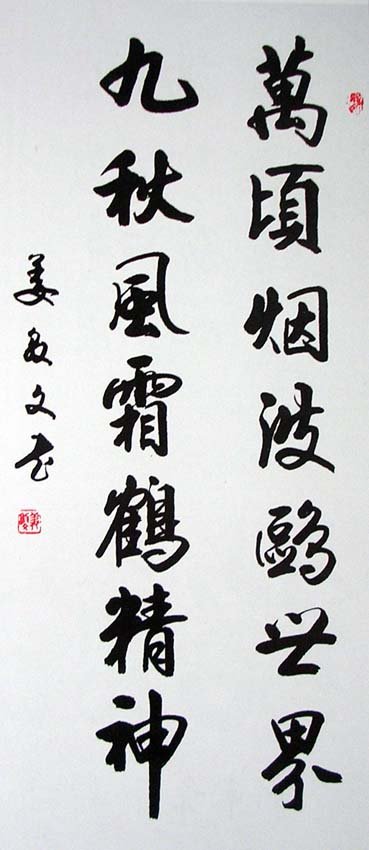 萬頃烟波鷗世界
九秋風霜鶴精神
姜殿文書